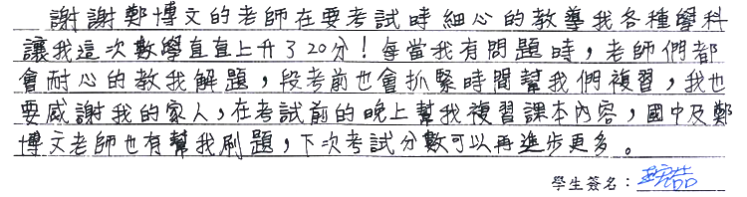 謝謝鄭博文的老師在要考試時細心的教導我各種學科
讓我這次數學直直上升了20分！每當我有問題時，老師們都
會耐心的教我解題，段考前也會抓緊時間幫我們複習，我也
要感謝我的家人，在考試前的晚上幫我複習課本內容，國中及鄭
博文老師也有幫我刷題，下次考試分數可以再進步更多。
學生簽名：